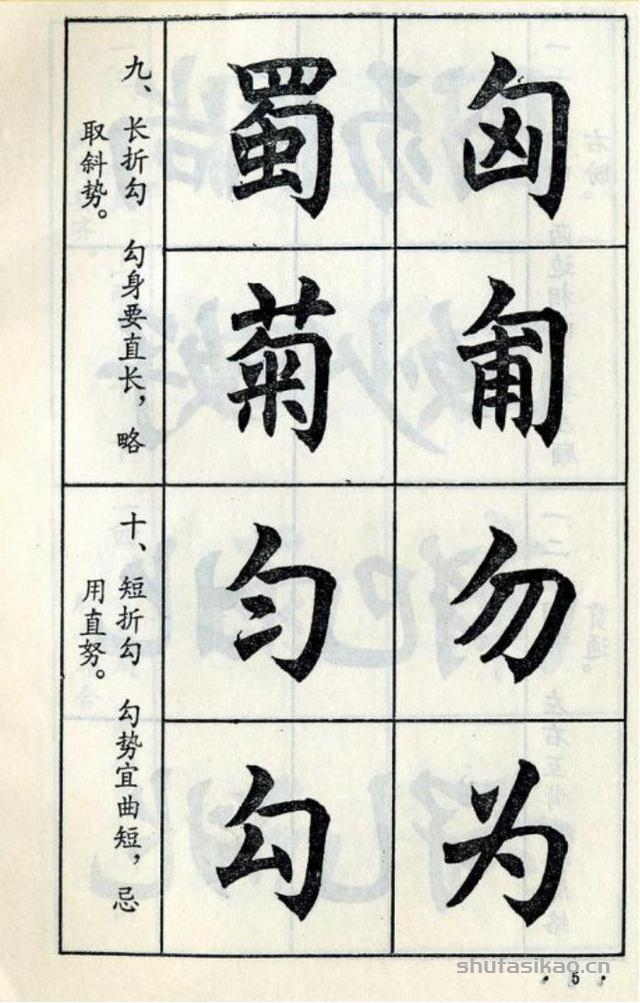 九、长折勾 勾身要直长，略
取斜势。
蜀匈
菊匍
十、短折勾 勾势宜曲短，忌
用直努。
匀勿
勾为
shufasikao.cn
·5·